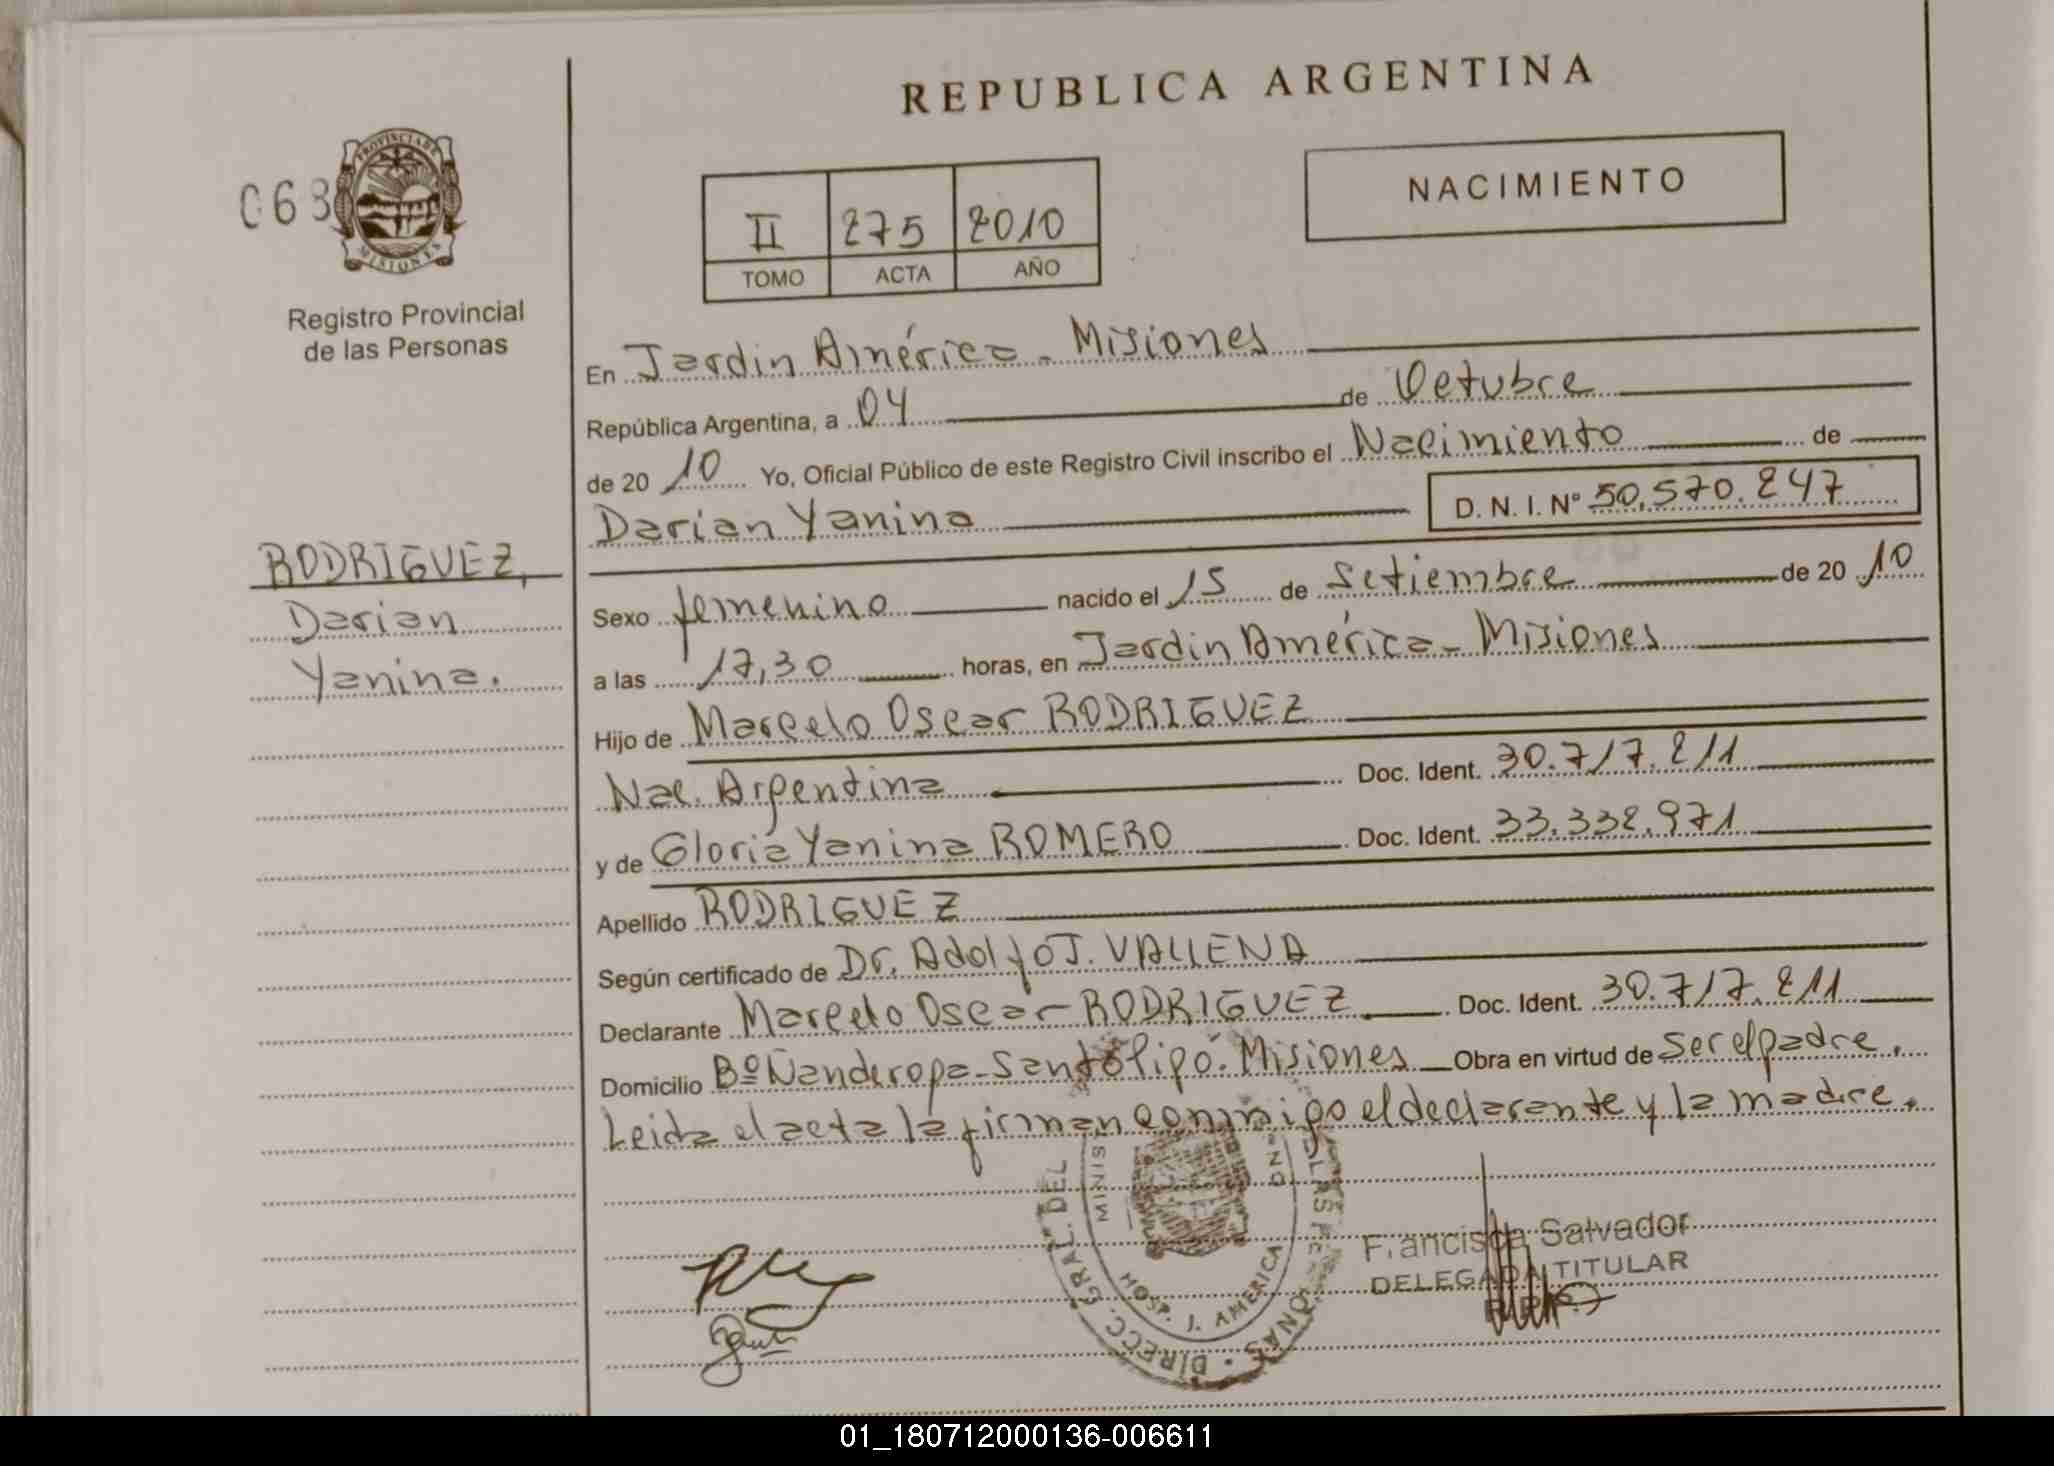 REPUBLICA ARGENTINA
068
PROVINCIA DE
MISIONES
Registro Provincial
de las Personas
II 275 2010
TOMO ACTA AÑO
NACIMIENTO
En Jardin América - Misiones
República Argentina, a 04 de Octubre
de 20 10 Yo, Oficial Público de este Registro Civil inscribo el Nacimiento de
Darian Yanina D. N. I. Nº 50.570.247
RODRIGUEZ,
Darian
Yanina.
Sexo femenino nacido el 15 de Setiembre de 20 10
a las 17,30 horas, en Jardin América - Misiones
Hijo de Marcelo Oscar RODRIGUEZ
Nac. Argentina Doc. Ident. 30.717.211
y de Gloria Yanina ROMERO Doc. Ident. 33.332.971
Apellido RODRIGUEZ
Según certificado de Dr. Adolfo J. VALLENA
Declarante Marcelo Oscar RODRIGUEZ Doc. Ident. 30.717.211
Domicilio Bº Ñanderopa - Santo Pipó. Misiones Obra en virtud de ser el padre.
Leida el acta la firman conmigo el declarante y la madre.
DIRECC. GRAL. DEL
MINIS
HOSP. J. AMERICA
Francisca Salvador
DELEGADA TITULAR
01_180712000136-006611